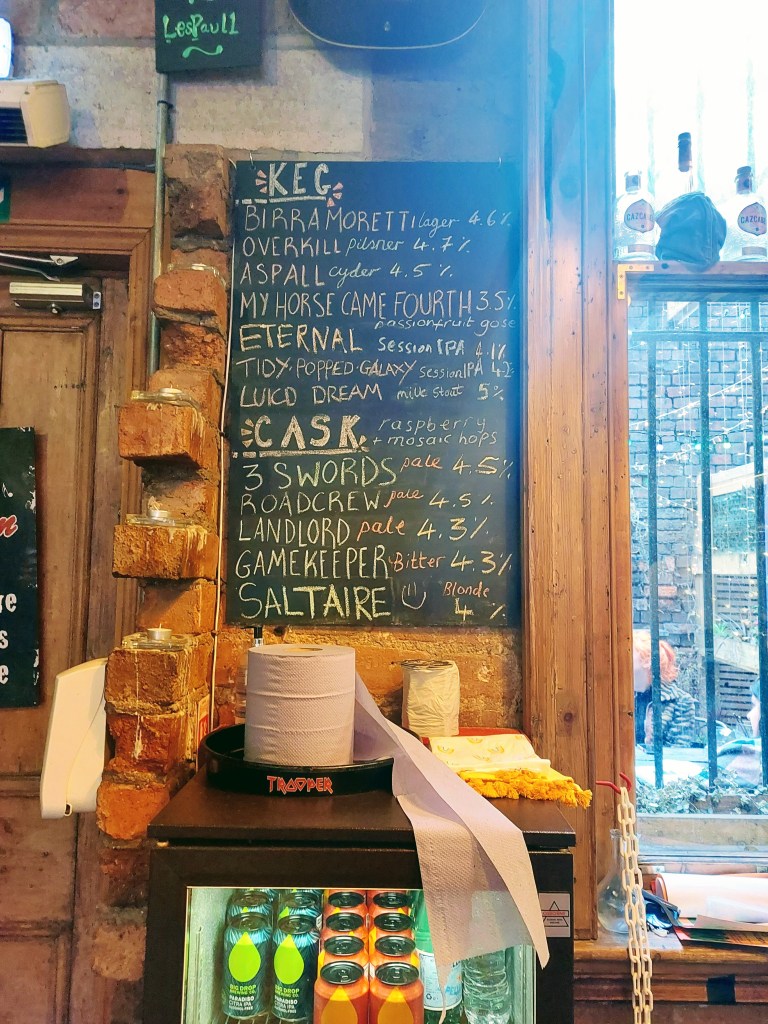 LesPaul1
KEG
BIRRA MORETTI lager 4.6%
OVERKILL pilsner 4.7%
ASPALL cyder 4.5%
MY HORSE CAME FOURTH 3.5%
passionfruit gose
ETERNAL Session IPA 4.1%
TIDY·POPPED·GALAXY Session IPA 4.2%
LUICD DREAM milk stout 5%
CASK raspberry
+ mosaic hops
3 SWORDS pale 4.5%
ROADCREW pale 4.5%
LANDLORD pale 4.3%
GAMEKEEPER Bitter 4.3%
SALTAIRE Blonde
4%
CAZCABEL
TROOPER
BIG DROP
BREWING CO.
PARADISO
CITRA IPA
BIG DROP
BREWING CO.
PARADISO
CITRA IPA